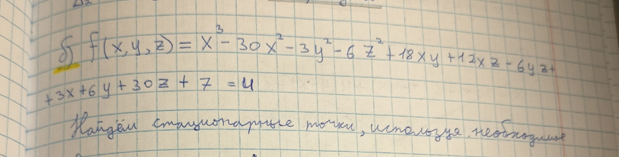 б) f(x,y,z) = x³-30x²-3y²-6z²+18xy+12xz-6yz+
+3x+6y+30z+7 = u
Найдём стационарные точки, используя необходимое